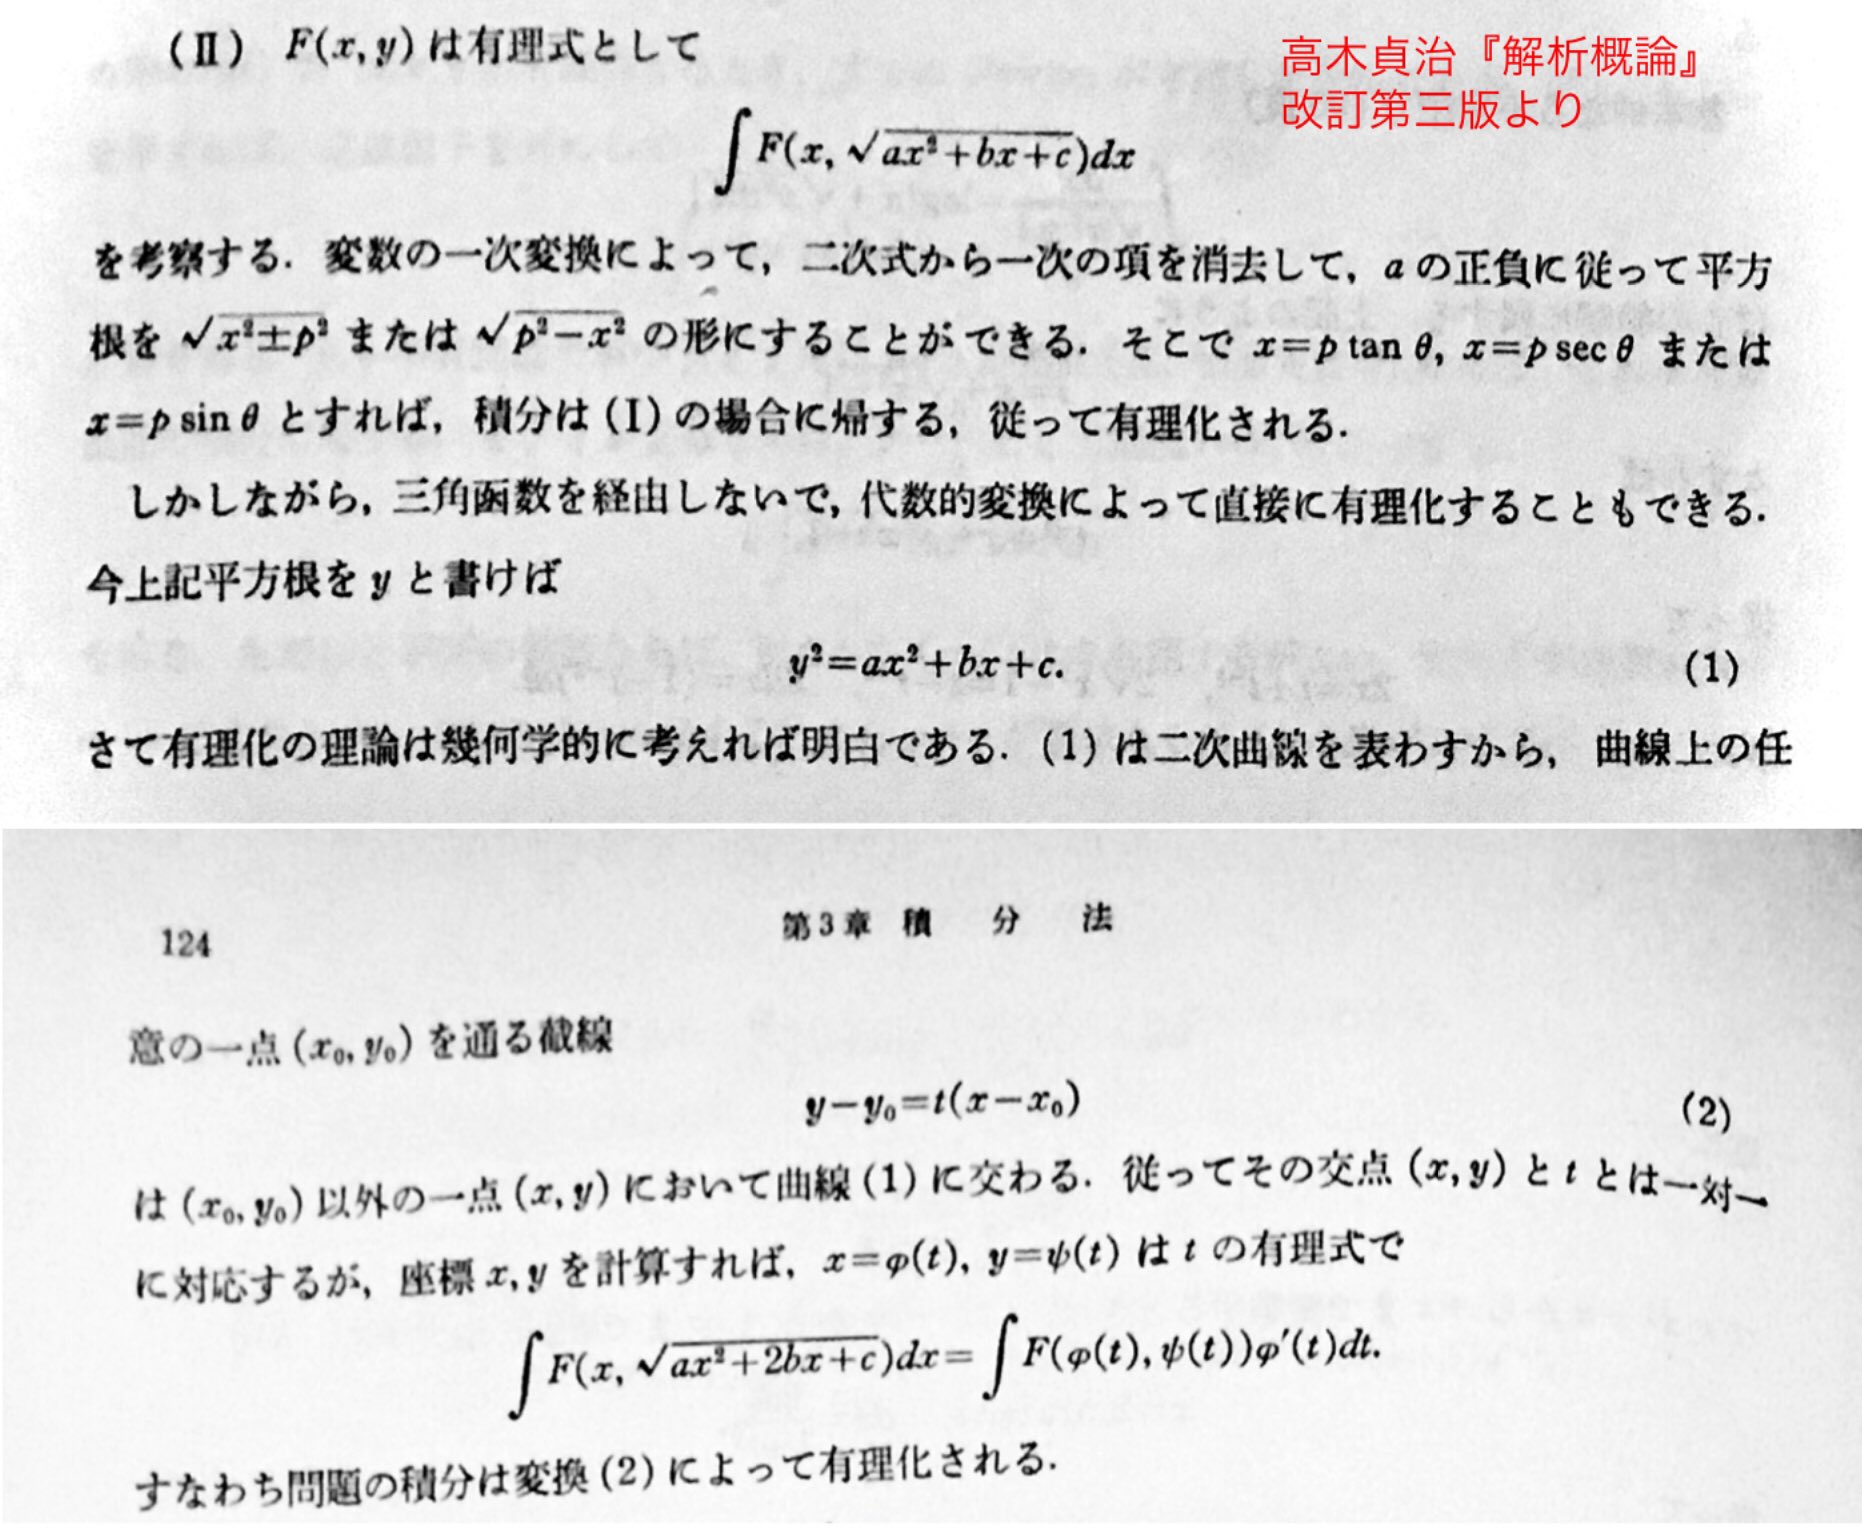 (II) F(x, y) は有理式として
高木貞治『解析概論』
改訂第三版より
∫F(x, √ax²+bx+c)dx
を考察する．変数の一次変換によって，二次式から一次の項を消去して，a の正負に従って平方
根を √x²±p² または √p²−x² の形にすることができる．そこで x=p tan θ, x=p sec θ または
x=p sin θ とすれば，積分は (I) の場合に帰する，従って有理化される．
しかしながら，三角函数を経由しないで，代数的変換によって直接に有理化することもできる．
今上記平方根を y と書けば
y²=ax²+bx+c. (1)
さて有理化の理論は幾何学的に考えれば明白である．(1) は二次曲線を表わすから，曲線上の任
124 第3章 積 分 法
意の一点 (x₀, y₀) を通る截線
y−y₀=t(x−x₀) (2)
は (x₀, y₀) 以外の一点 (x, y) において曲線 (1) に交わる．従ってその交点 (x, y) と t とは一対一
に対応するが，座標 x, y を計算すれば，x=φ(t), y=ψ(t) は t の有理式で
∫F(x, √ax²+2bx+c)dx=∫F(φ(t), ψ(t))φ′(t)dt.
すなわち問題の積分は変換 (2) によって有理化される．